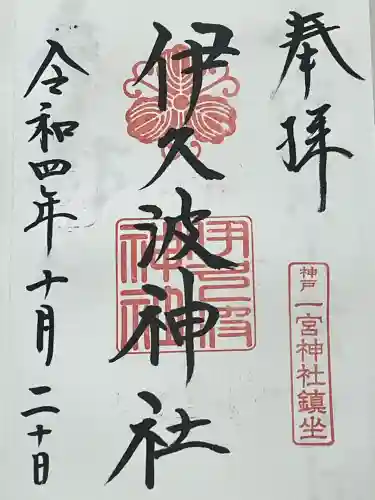 奉拝
神戸 一宮神社鎮坐
伊久波神社
伊久波神社
令和四年十月二十日